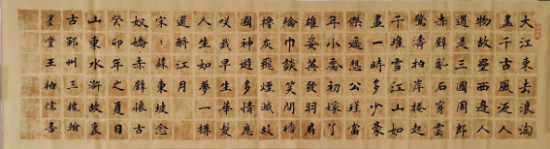 大江東去浪淘
盡千古風流人
物故壘西邊人
道是三國周郎
赤壁亂石穿空
驚濤拍岸捲起
千堆雪江山如
畫一時多少豪
傑遙想公瑾當
年小喬初嫁了
雄姿英發羽扇
綸巾談笑間檣
櫓灰飛煙滅故
國神遊多情應
笑我早生華髮
人生如夢一樽
還酹江月
宋蘇東坡念
奴嬌赤壁懷古
癸卯年之夏日
山東水滸故里
古鄆州三槐翰
墨堂王柏儒書